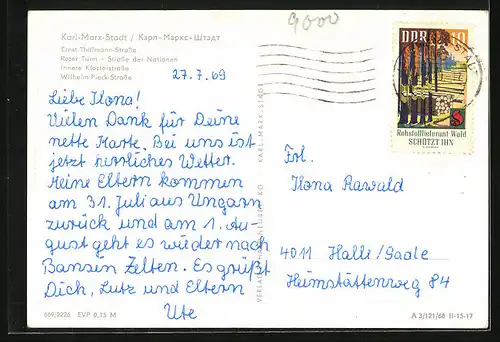 Karl-Marx-Stadt / Карл-Маркс-Штадт
Ernst-Thälmann-Straße
Roter Turm - Straße der Nationen
Innere Klosterstraße
Wilhelm-Pieck-Straße
9000
27.7.69
Liebe Ilona!
Vielen Dank für Deine
nette Karte. Bei uns ist
jetzt herrliches Wetter.
Meine Eltern kommen
am 31. Juli aus Ungarn
zurück und am 1. Au-
gust geht es wieder nach
Bansin Zelten. Es grüßt
Dich, Lutz und Eltern
Ute
669/2226 EVP 0,15 M
KARL-MARX-STADT
DDR 10
Rohstofflieferant Wald
SCHÜTZT IHN
Frl.
Ilona Rawald
4011 Halle/Saale
Heimstättenweg 84
A 3/121/68 II-15-17